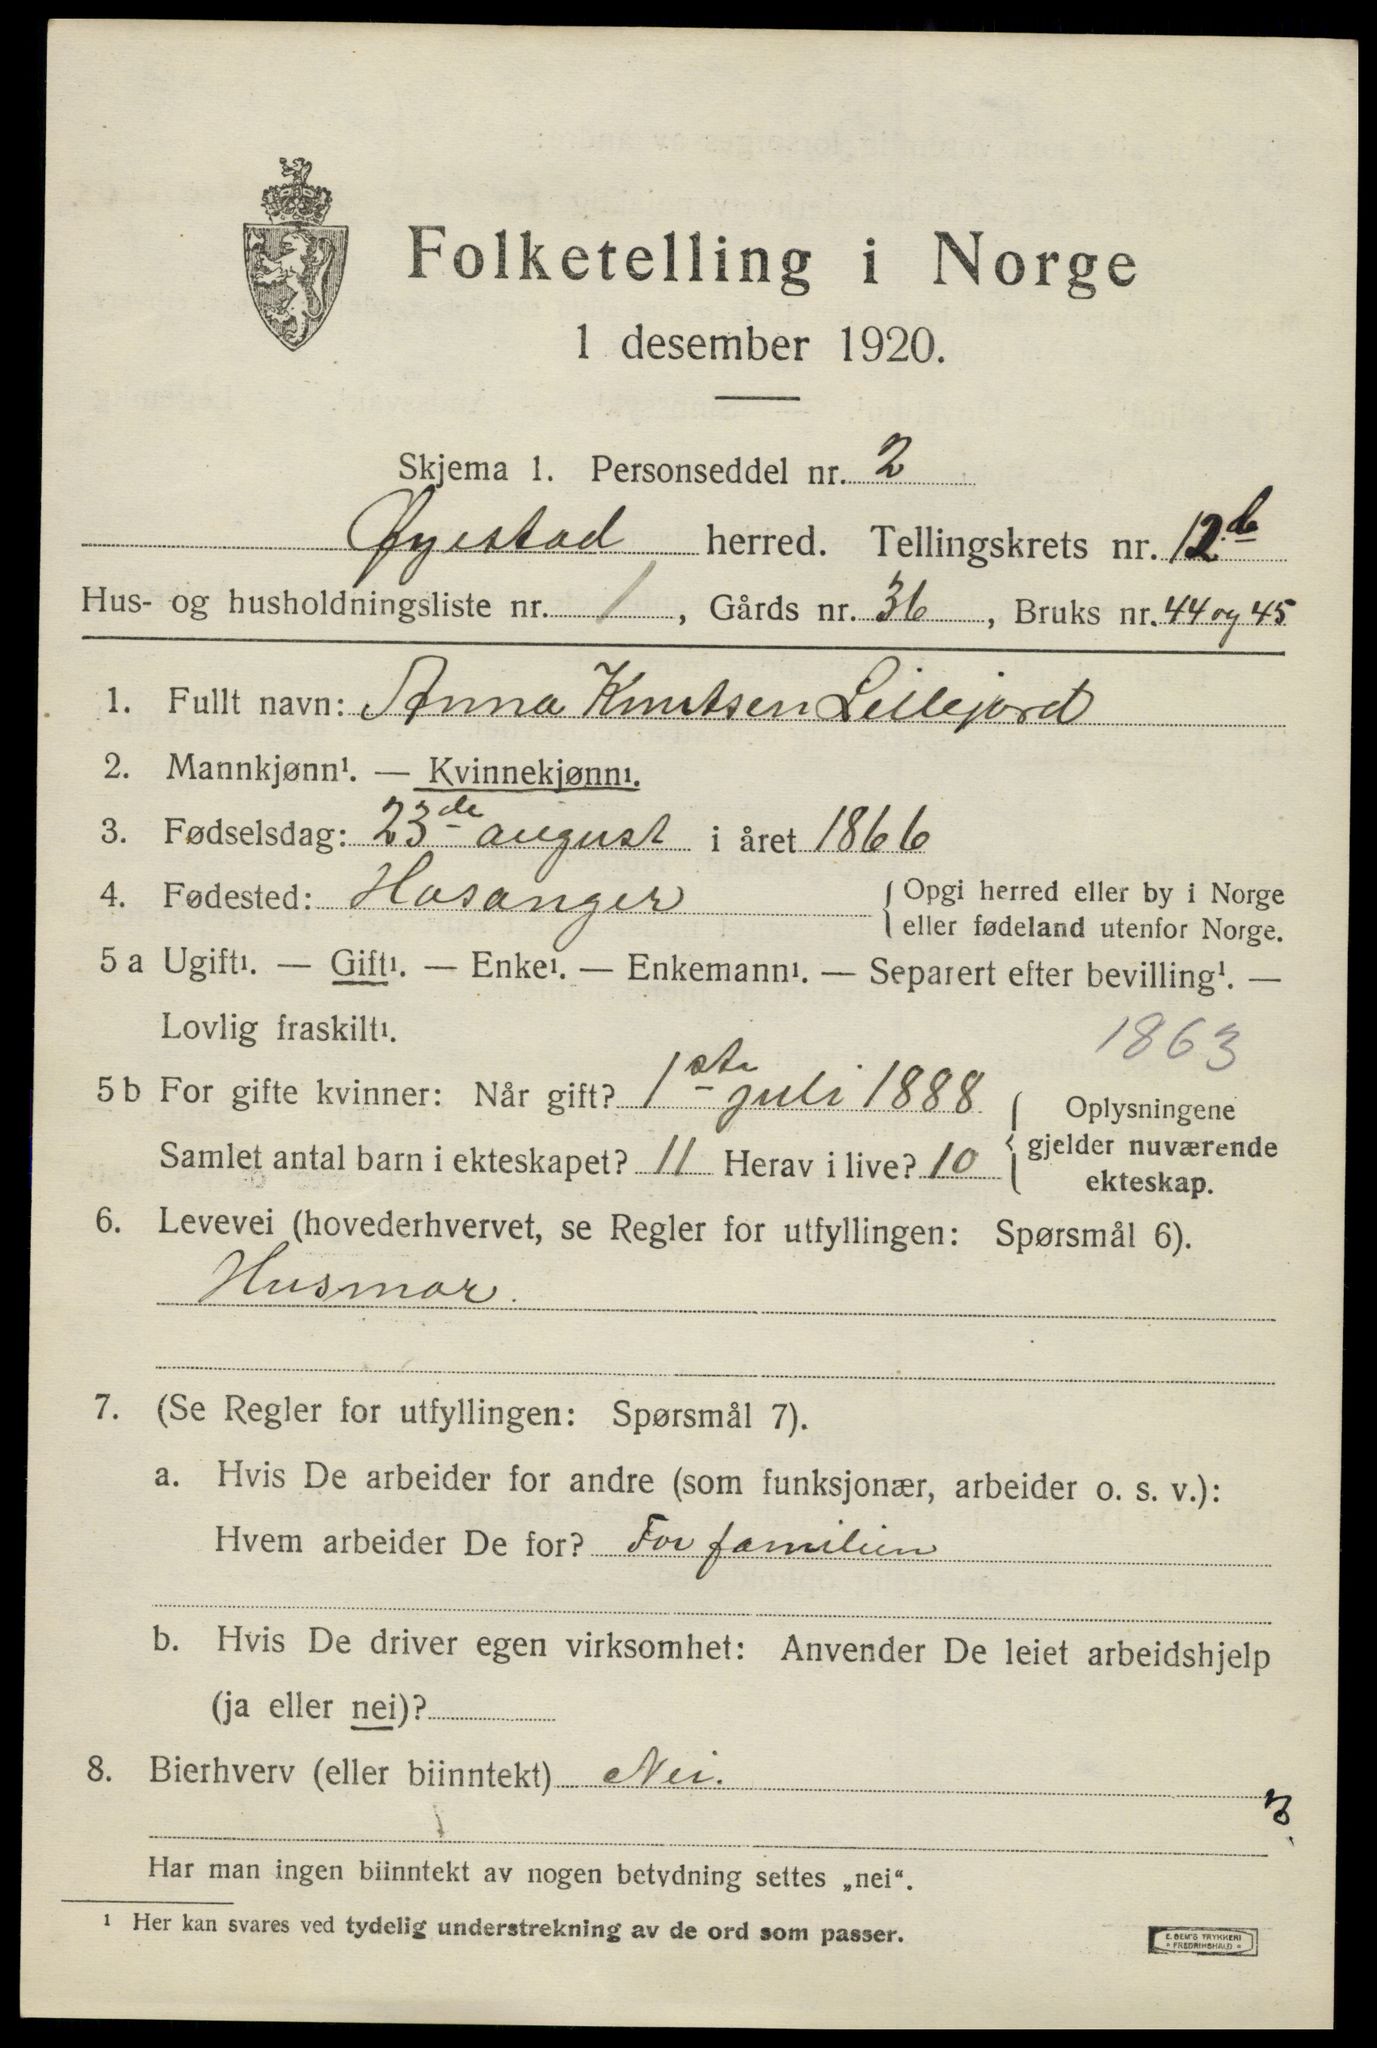 Folketelling i Norge
1 desember 1920.
Skjema 1. Personseddel nr. 2
Øyestad herred. Tellingskrets nr. 12 de
Hus- og husholdningsliste nr. 1, Gårds nr. 36, Bruks nr. 44 og 45
1. Fullt navn: Anna Knutsen Lillejord
2. Mannkjønn¹. — Kvinnekjønn¹.
3. Fødselsdag: 23de august i året 1866
4. Fødested: Hosanger { Opgi herred eller by i Norge
eller fødeland utenfor Norge.
5 a Ugift¹. — Gift¹. — Enke¹. — Enkemann¹. — Separert efter bevilling¹. —
Lovlig fraskilt¹.
1863
5 b For gifte kvinner: Når gift? 1ste juli 1888 { Oplysningene
Samlet antal barn i ekteskapet? 11 Herav i live? 10 gjelder nuværende
ekteskap.
6. Levevei (hovederhvervet, se Regler for utfyllingen: Spørsmål 6).
Husmor.
7. (Se Regler for utfyllingen: Spørsmål 7).
a. Hvis De arbeider for andre (som funksjonær, arbeider o. s. v.):
Hvem arbeider De for? For familien
b. Hvis De driver egen virksomhet: Anvender De leiet arbeidshjelp
(ja eller nei)?
8. Bierhverv (eller biinntekt) Nei.
3.
Har man ingen biinntekt av nogen betydning settes „nei“.
¹ Her kan svares ved tydelig understrekning av de ord som passer.
E. SEM'S TRYKKERI
• FREDRIKSHALD •